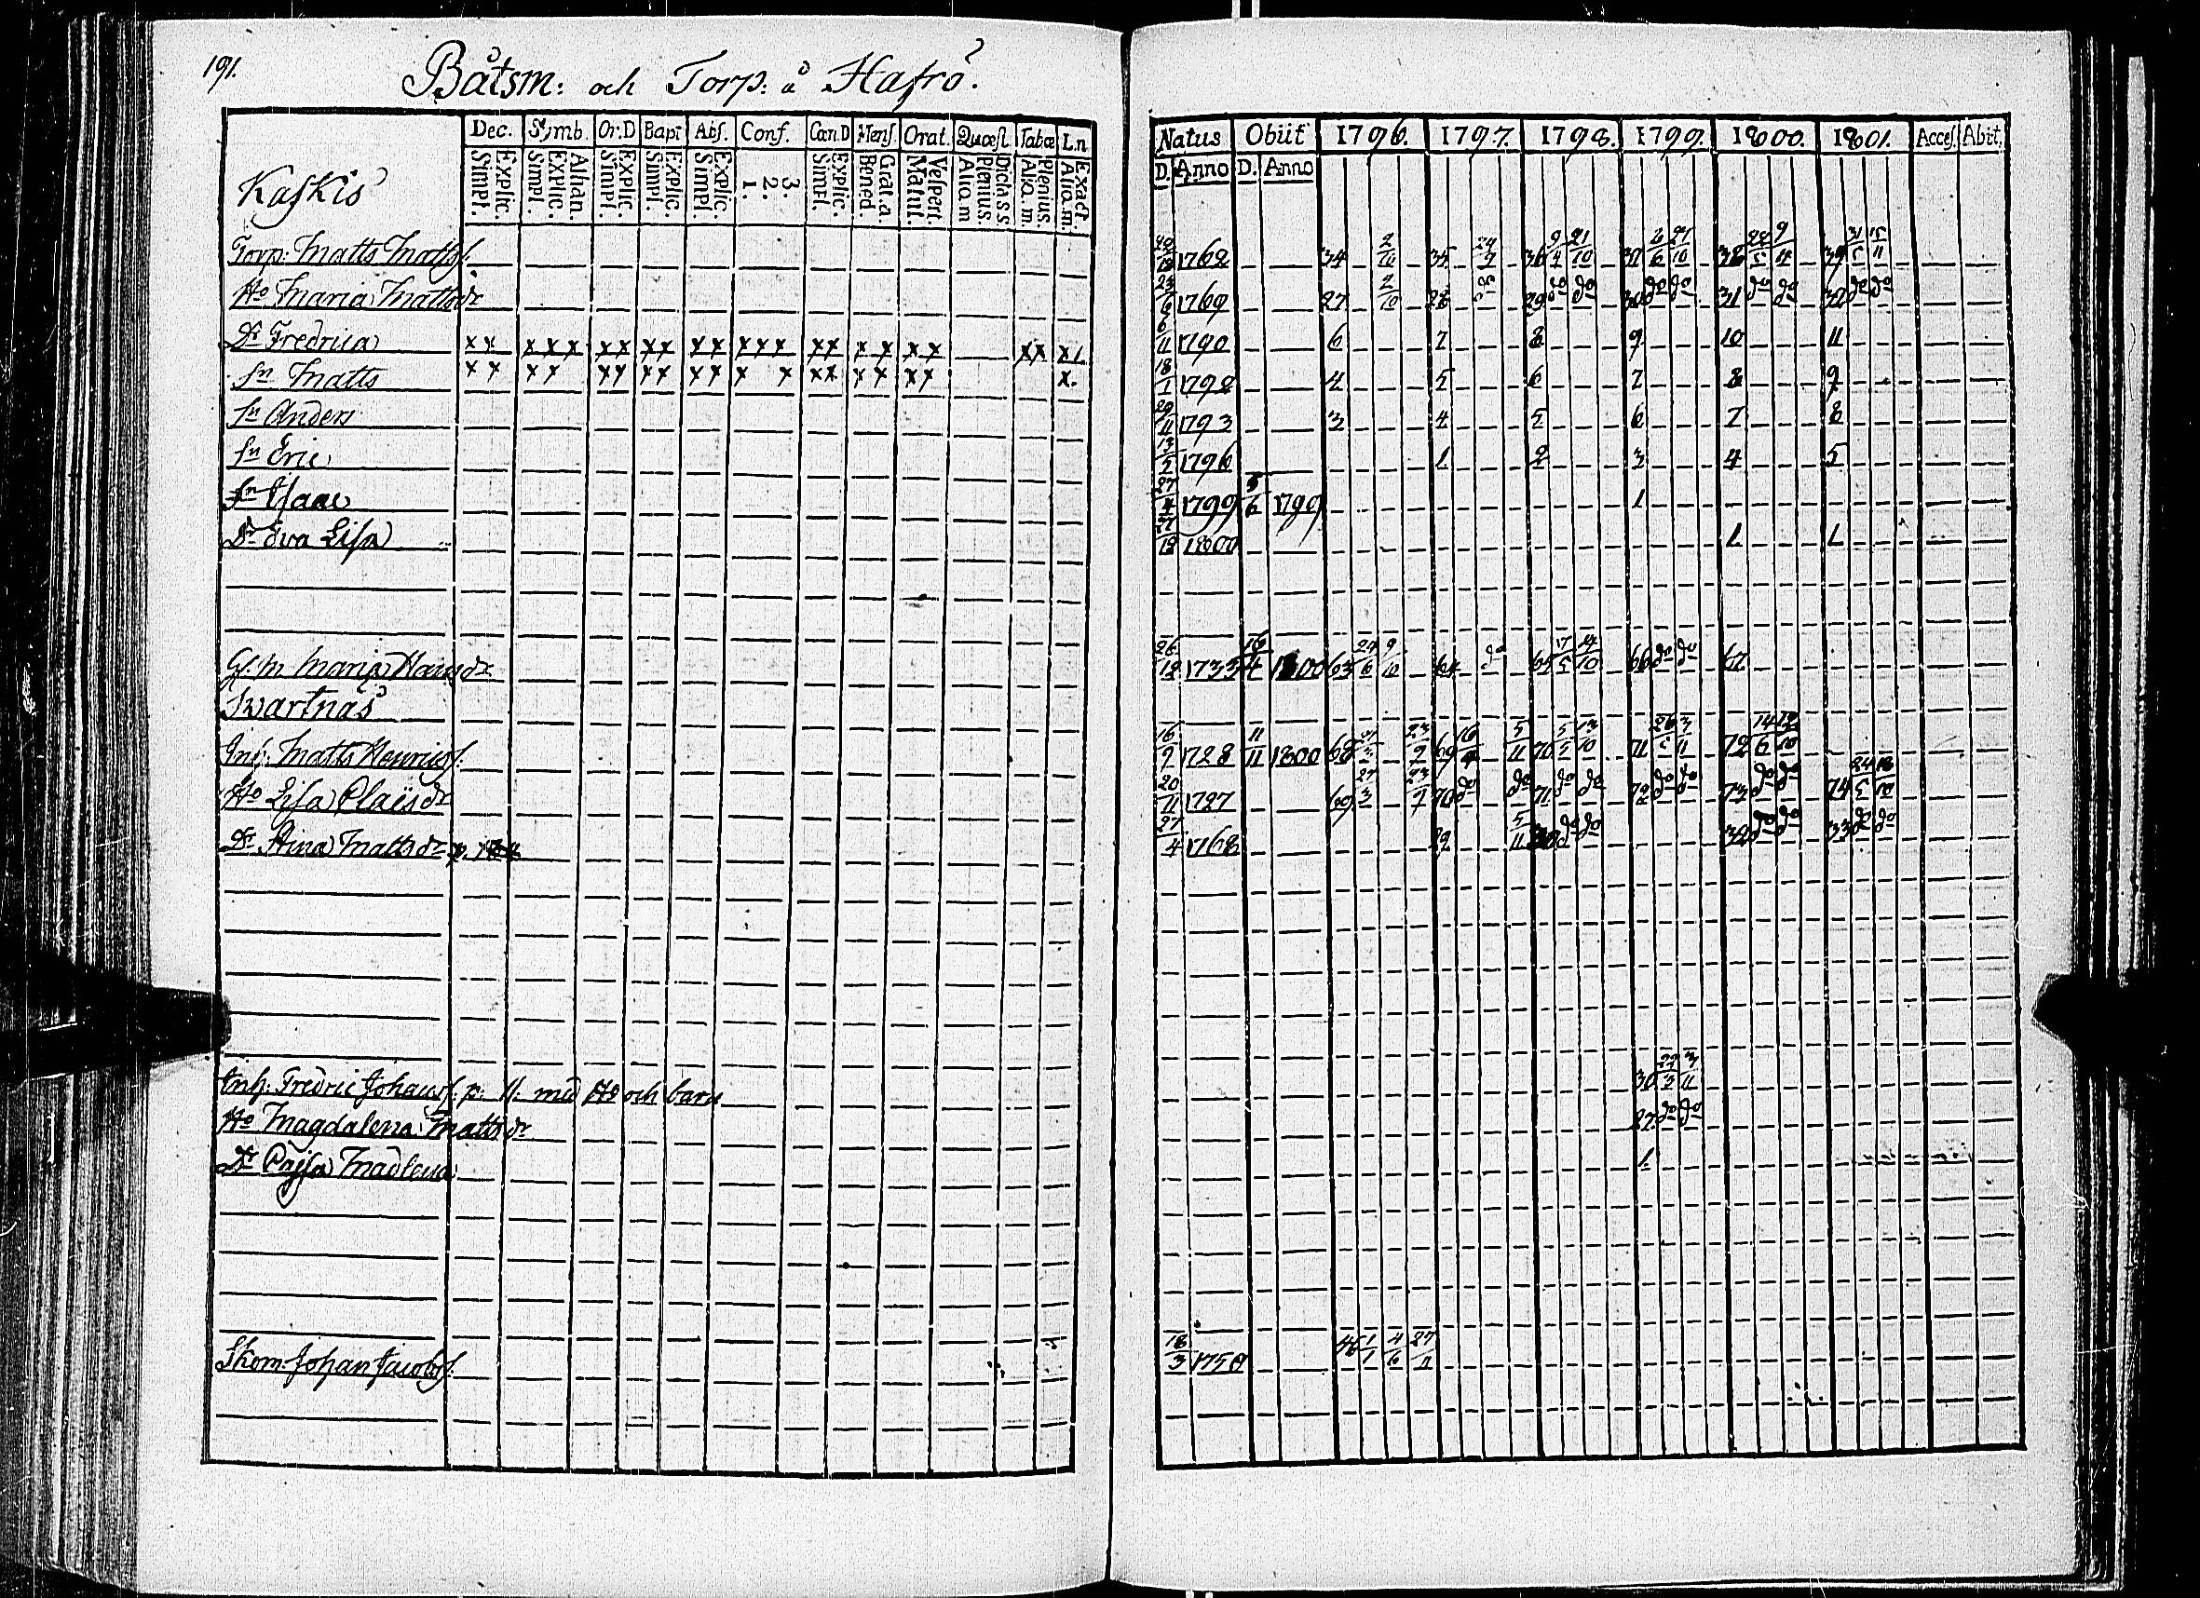 191.
Båtsm: och Torp: å Hafrö.
Dec. Symb. Or.D Bapt Abs. Conf. Cœn.D Mens. Orat. Quæst Tabæ L.n
Explic. Simpl. Athan. Explic. Simpl. Explic. Simpl. Explic. Simpl. Explic. Simpl. 3. 2. 1. Explic. Simpl. Grat. a Bened. Vespert. Matut. Dicta s s. Plenius. Aliq. m Plenius. Aliq. m. Exact. Aliq. m.
Kaskis
Torp: Matts Mattss.
Ho Maria Mattsdr
Dr Fredrica x x x x x x x x x x x x x x x x x x x x x x x x
Sn Matts x x x x x x x x x x x x x x x x x x x.
Sn Anders
Sn Eric
Sn Isaac
Dr Eva Lisa
G. m Maria Hansdr
Swartnäs
Inh: Matts Henricss.
Ho Lisa Claësdr
Dr Stina Mattsdr
Inh: Fredric Johanss. p. 11. med Ho och barn
Ho Magdalena Mattsdr
Dr Cajsa Madlena
Skom: Johan Jacobss.
Natus Obiit 1796. 1797. 1798. 1799. 1800. 1801. Acces. Abit.
D. Anno D. Anno
1762 34 2/10 35 36 9/4 21/10 37 38 39 31/5 15/11
1769 27 2/10 28 do 29 do do 30 do do 31 do do 32 do do
6/11 1790 6 7 8 9 10 11
18/1 1792 4 5 6 7 8 9
29/11 1793 3 4 5 6 7 8
13/5 1796 1 2 3 4 5
27/4 1799 5/6 1799 1
1800 1 1
26/12 1733 16/4 1800 63 24/6 9/10 64 do 65 17/5 14/10 66 do do 67
16/9 1728 11/11 1800 68 23/9 69 5/11 70 5/5 13/10 71 26/5 3/11 72 14/6 12/10
20/11 1727 69 27/3 23/9 70 do do 71 do do 72 do do 73 do do 74 24/5 18/10
27/4 1768 29 5/11 do do 32 do do 33 do do
30 3/11
27 do do
1.
18/3 1750 46 1/1 4/6 27/11